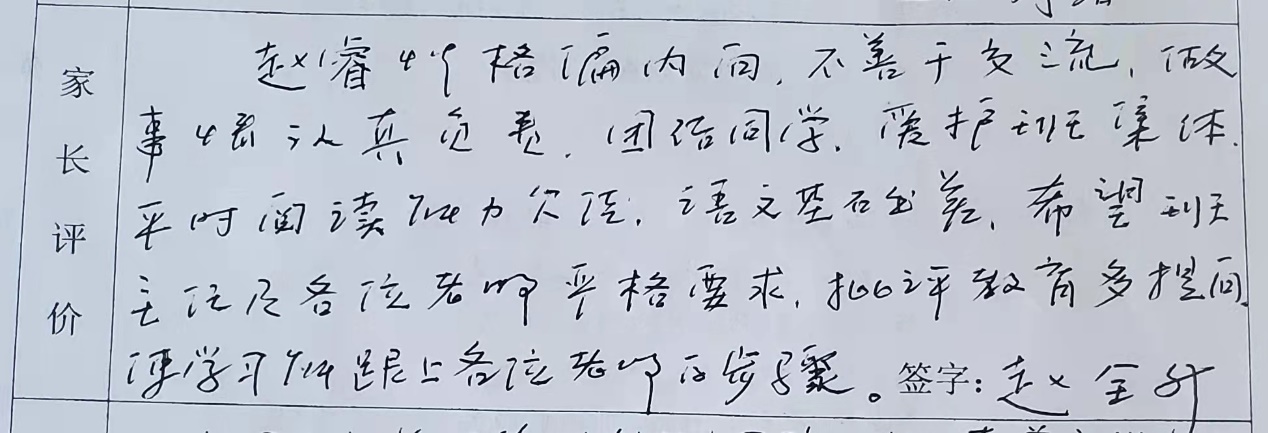 家长评价
赵睿性格偏内向,不善于交流,做
事情认真负责,团结同学,爱护班集体.
平时阅读能力欠佳,语文基础差,希望班
主任及各位老师严格要求,批评教育多提问,
使学习能跟上各位老师的步骤。签字:赵全升